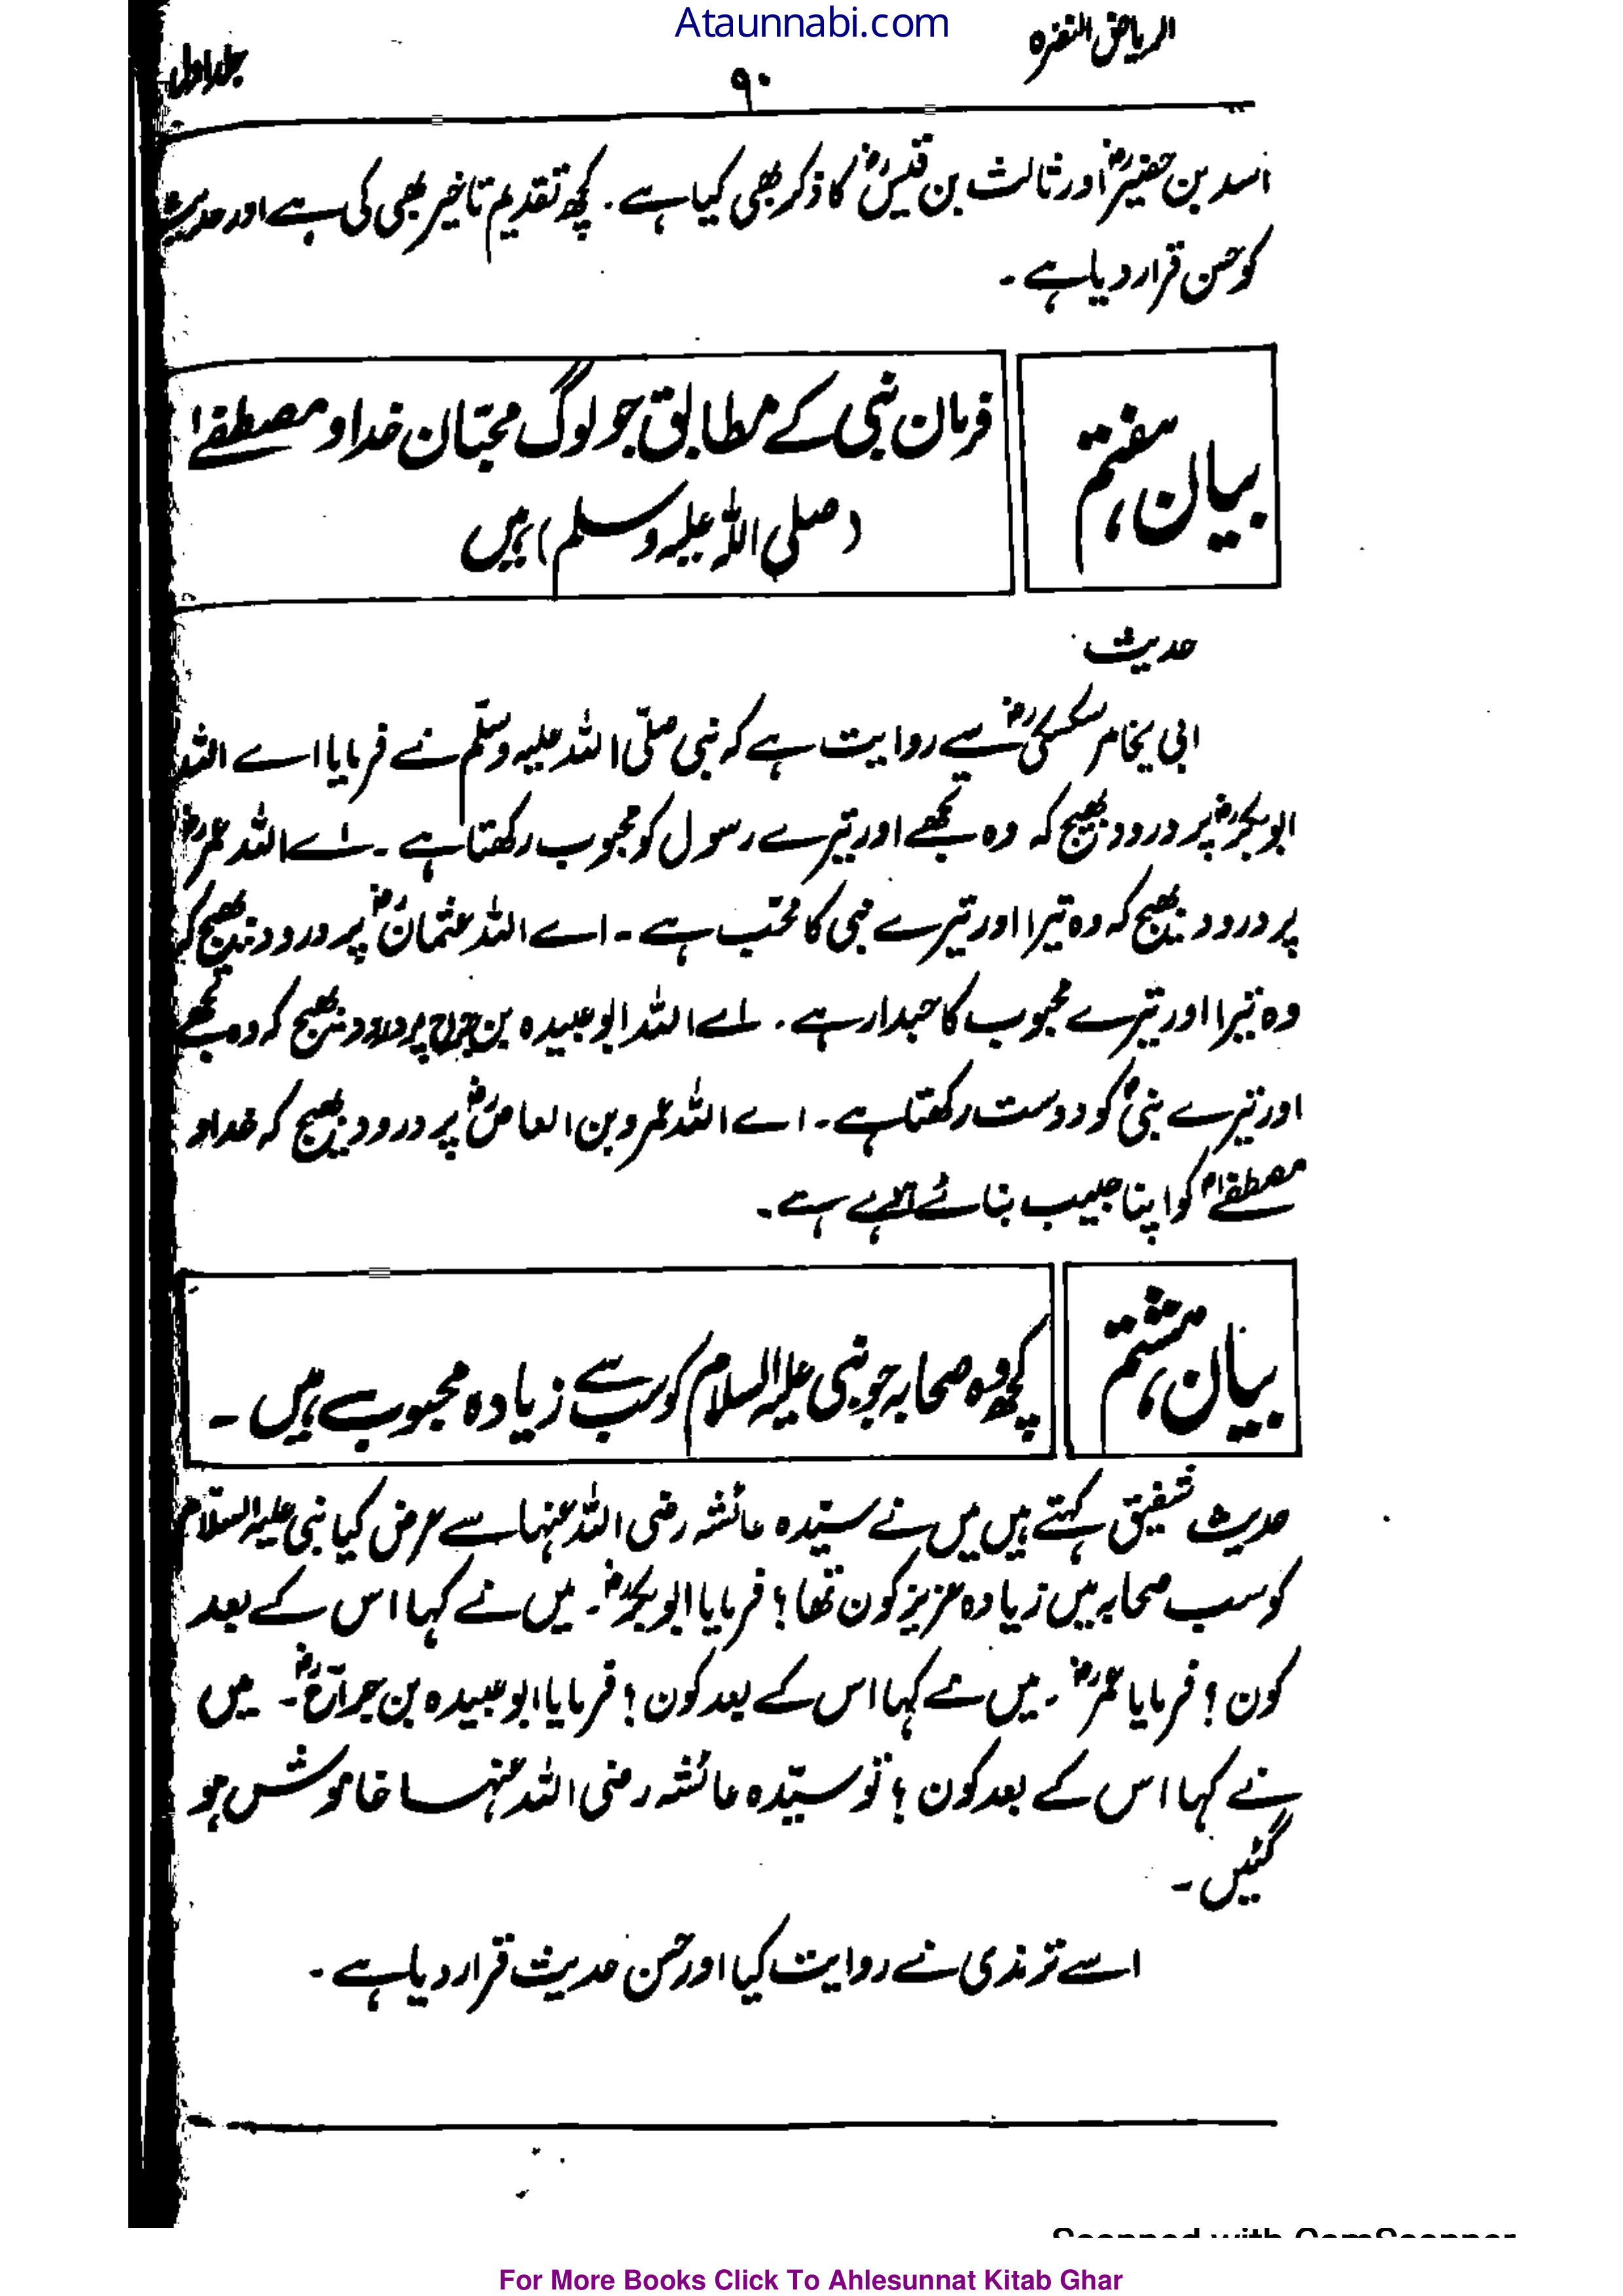 Ataunnabi.com
الریاض النضرہ
۹۰
جلد اول
اسد بن حضیرؓ اور ثالث بن قیسؓ کا ذکر بھی کیا ہے ۔ کچھ تقدیم تاخیر بھی کی ہے اور حدیث
کو حسن قرار دیا ہے ۔
بیان ہفتم
فرمان نبی کے مطابق جو لوگ محبّان خدا و مصطفےٰ
(صلی اللہ علیہ وسلم) ہیں
حدیث
ابی یخامر سکسکیؓ سے روایت ہے کہ نبی صلّی اللہ علیہ وسلّم نے فرمایا اے اللہ
ابوبکرؓ پر درود بھیج کہ وہ تجھے اور تیرے رسول کو محبوب رکھتا ہے ۔ اے اللہ عمرؓ
پر درود بھیج کہ وہ تیرا اور تیرے نبی کا محب ہے ۔ اے اللہ عثمانؓ پر درود بھیج کہ
وہ تیرا اور تیرے محبوب کا حبدار ہے ۔ اے اللہ ابو عبیدہ بن جراح پر درود بھیج کہ وہ تجھے
اور تیرے نبیؐ کو دوست رکھتا ہے ۔ اے اللہ عمرو بن العاصؓ پر درود بھیج کہ خدا و
مصطفےٰؐ کو اپنا حبیب بنائے ہے ۔
بیان ہشتم
کچھ وہ صحابہ جو نبی علیہ السلام کو سب سے زیادہ محبوب ہیں ۔
حدیث شفیق کہتے ہیں میں نے سیّدہ عائشہ رضی اللہ عنہا سے عرض کیا نبی علیہ السّلام
کو سب صحابہ میں زیادہ عزیز کون تھا ؟ فرمایا ابوبکرؓ ۔ میں نے کہا اس کے بعد
کون ؟ فرمایا عمرؓ ۔ میں نے کہا اس کے بعد کون ؟ فرمایا ابو عبیدہ بن جراحؓ ۔ میں
نے کہا اس کے بعد کون ؟ تو سیّدہ عائشہ رضی اللہ عنہا خاموش ہو
گئیں ۔
اسے ترمذی نے روایت کیا اور حسن حدیث قرار دیا ہے ۔
Scanned with CamScanner
For More Books Click To Ahlesunnat Kitab Ghar